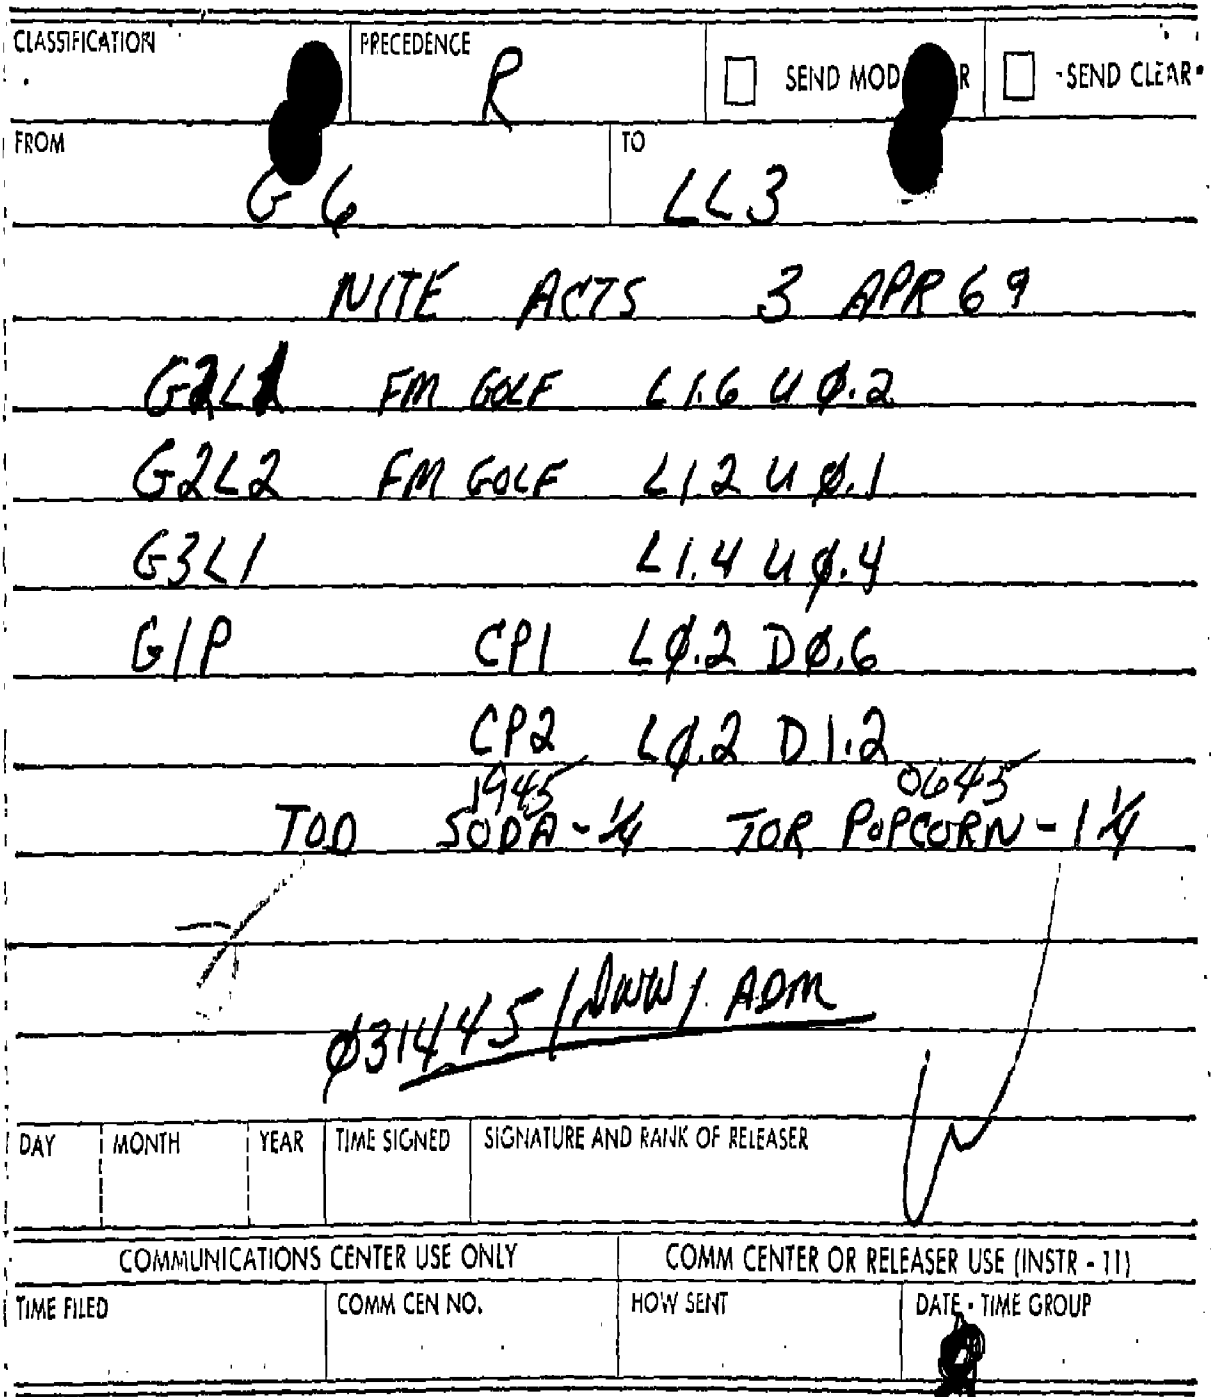 CLASSIFICATION PRECEDENCE R SEND MOD R SEND CLEAR
FROM G6 TO LL3
NITE ACTS 3 APR 69
G2L1 FM GOLF L1.6 U Ø.2
G2L2 FM GOLF L1.2 U Ø.1
G3L1 L1.4 U Ø.4
G1P CP1 LØ.2 DØ.6
CP2 LØ.2 D1.2
1945 0645
TOD SODA-1/4 TOR POPCORN-1 1/4
Ø31445/DWW/ADM
DAY MONTH YEAR TIME SIGNED SIGNATURE AND RANK OF RELEASER
COMMUNICATIONS CENTER USE ONLY COMM CENTER OR RELEASER USE (INSTR - 11)
TIME FILED COMM CEN NO. HOW SENT DATE - TIME GROUP